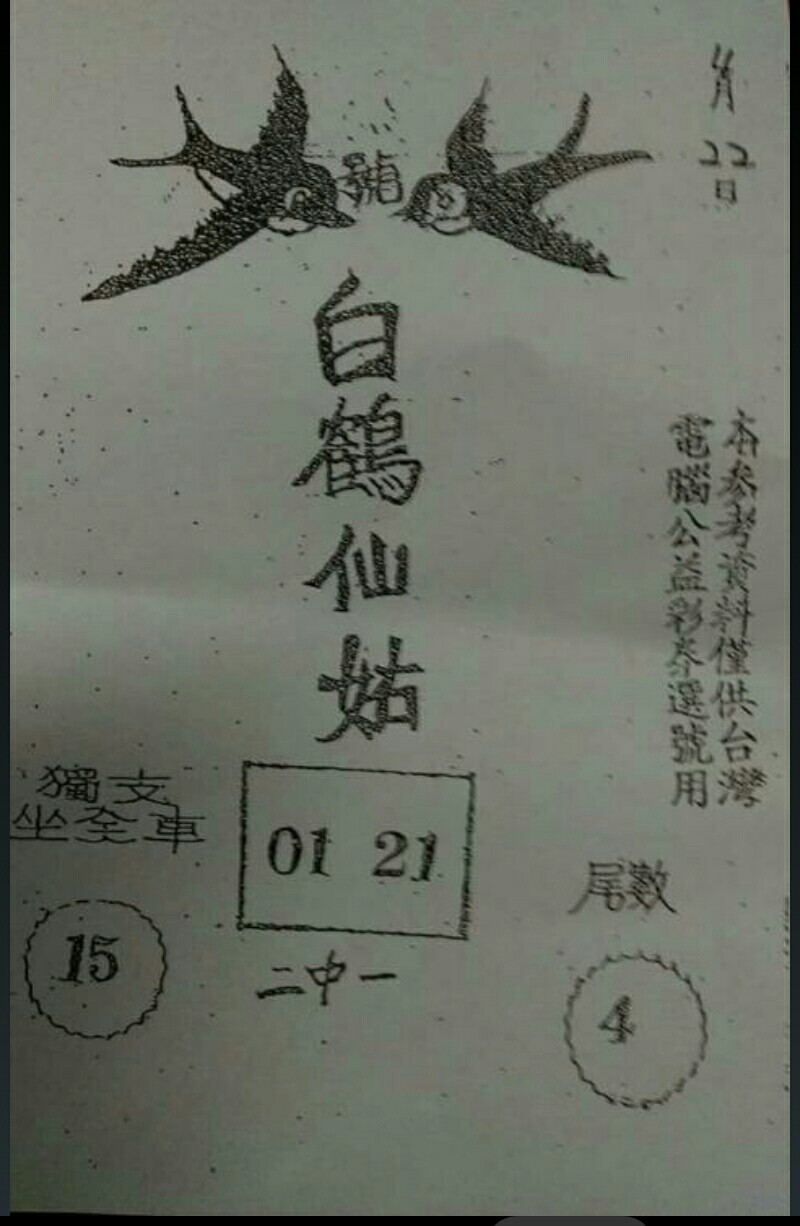 月
22
日
本參考資料僅供台灣
電腦公益彩券選號用
白鶴仙姑
獨支
坐全車
15
01 21
二中一
尾數
4